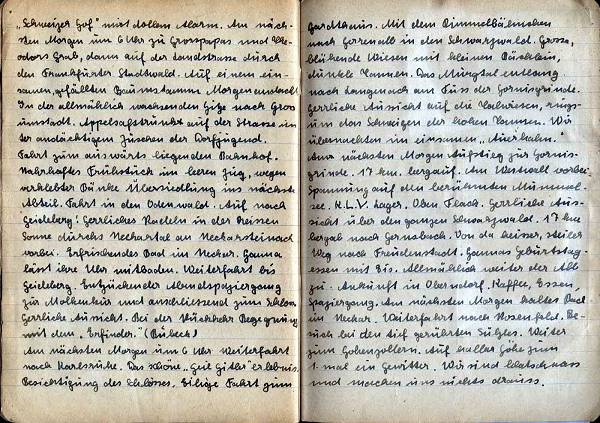 „Schweizer Hof" mit dollem Alarm. Am näch-
sten Morgen um 6 Uhr zu Grosspapas und Theo-
dors Grab, dann auf der Landstrasse durch
den Frankfurter Stadtwald. Auf einem ein-
samen, gefällten Baumstamm Morgenandacht
In der allmählich wachsenden Hitze nach Gross
umstadt. Appelsaftstrunkt auf der Strasse un
ter andächtigem Zuschen der Dorfjugend.
Fahrt zum auswärts liegenden Bahnhof.
Nahrhaftes Frühstück im leeren Zug, wegen
verklebter Bänke Übersiedlung ins nächste
Abteil. Fahrt in den Odenwald. Auf nach
Heidelberg! Herrliches Radeln in der heissen
Sonne durchs Neckartal an Neckarsteinach
vorbei. Erfrischendes Bad im Neckar. Hanna
lässt ihre Uhr mitbaden. Weiterfahrt bis
Heidelberg. Entzückender Abendspaziergang
zur Molkenkur und anschliessend zum Schloss
Herrliche Aussicht. Bei der Rückkehr Begegnung
mit dem „Erfinder." (Rübech)
Am nächsten Morgen um 6 Uhr Weiterfahrt
nach Karlsruhe. Das schöne „Heil Hitler" erlebnis.
Besichtigung des Schlosses. Eilige Fahrt zum
Gardthaus. Mit dem Bimmelbähnchen
nach Herrenalb in den Schwarzwald. Grosse,
blühende Wiesen mit kleinen Bächlein,
dunkle Tannen. Das Murgtal entlang
nach Langenach am Fuss der Hornisgrinde.
Herrliche Aussicht auf die Talwiesen, rings
um das Schweigen der hohen Tannen. Wir
übernachten im einsamen „Auerhahn."
Am nächsten Morgen Aufstieg zur Hornis-
grinde. 17 km. bergauf. Am Westwall vorbei.
Spannung auf den berühmten Mummel-
see. K.L.V. Lager. Oben Flach. Herrliche Aus-
sicht über den ganzen Schwarzwald. 17 km
bergab nach Gernsbach. Von da heisser, steiler
Weg nach Freudenstadt. Hannas Geburtstag
essen mit Eis. Allmählich weiter der Alb
zu. Ankunft in Oberndorf. Kaffee, Essen,
Spaziergang. Am nächsten Morgen kaltes Bad
im Neckar. Weiterfahrt nach Rosenfeld. Be-
such bei den tief gerührten Sülzles. Weiter
zum Hohenzollern. Auf halber Höhe zum
1. mal ein Gewitter. Wir sind klatschnass
und machen uns nichts draus.